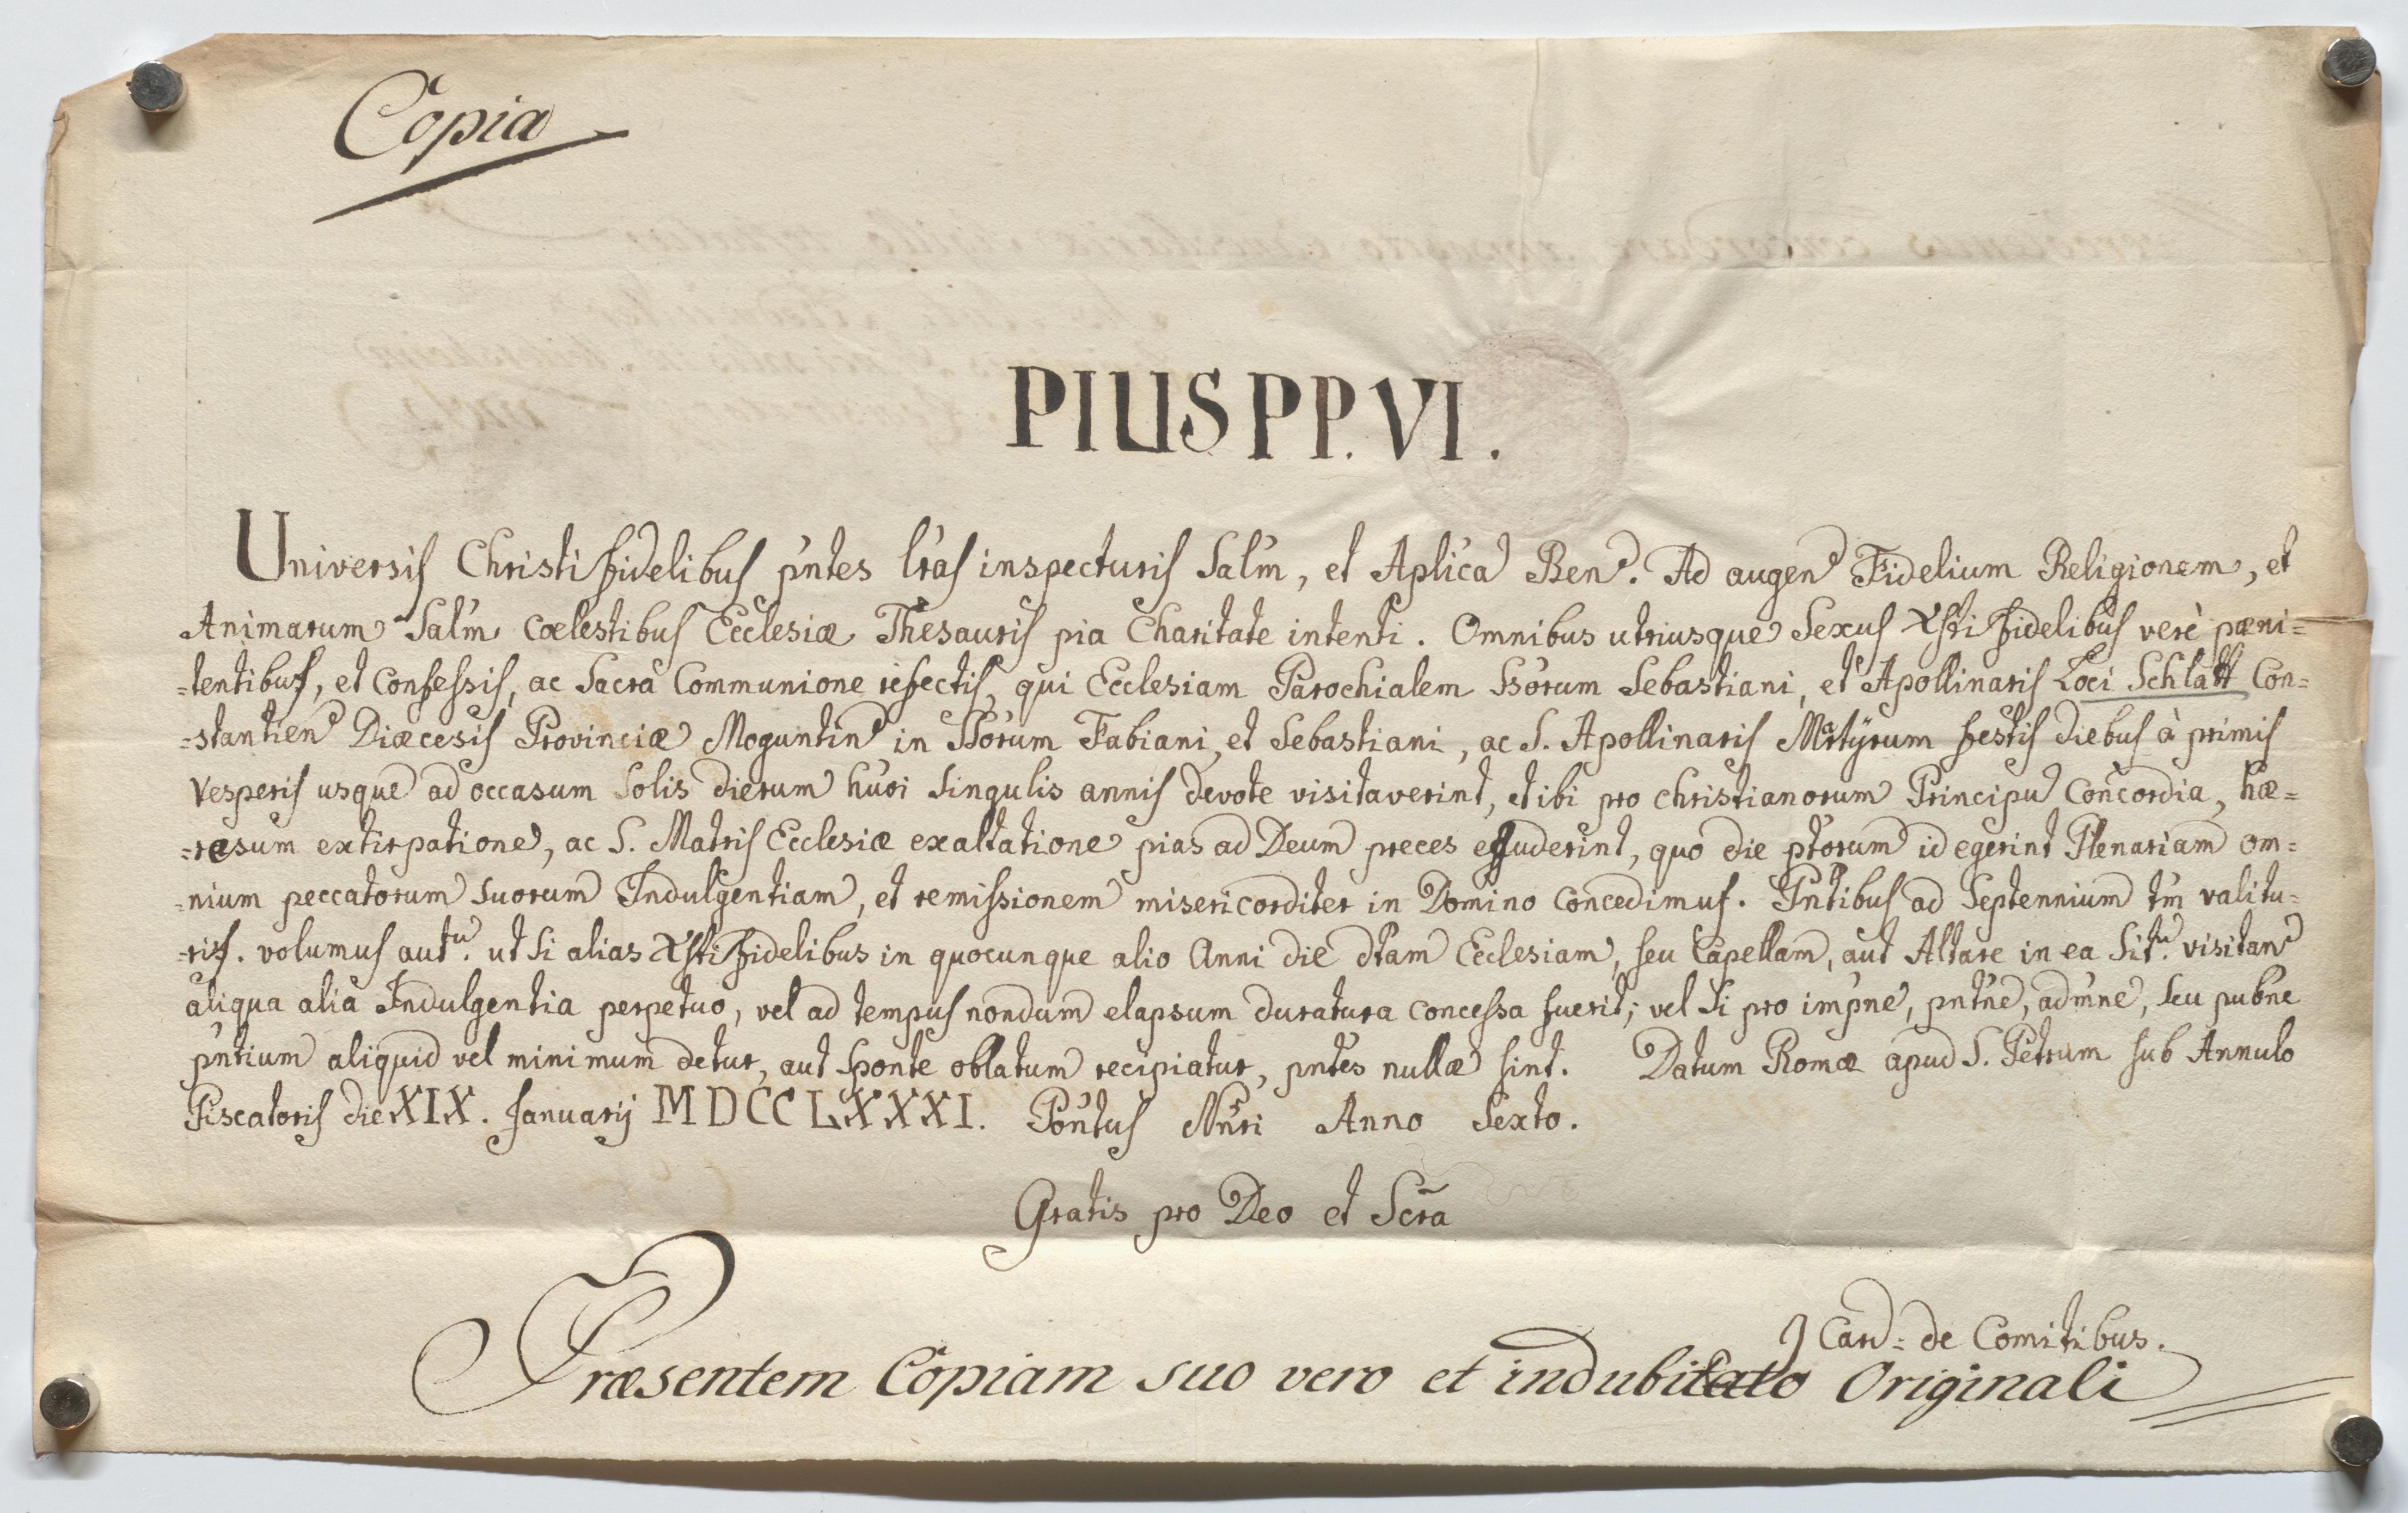 Copia
PIUS PP. VI.
Universis Christi fidelibus pńtes lrás inspecturis Salḿ, et Aplićã Ben. Ad augen Fidelium Religionem, et
Animarum Salḿ cœlestibus Ecclesiæ Thesauris pia Charitate intenti. Omnibus utriusque Sexus Xsti fidelibus verè pæni=
=tentibus, et Confessis, ac Sacrâ Communione refectis, qui Ecclesiam Parochialem Sśorum Sebastiani, et Apollinaris Loci Schlatt Con=
=stantien Diæcesis Provinciæ Moguntin in Sśorum Fabiani, et Sebastiani, ac S. Apollinaris Mrtÿrum festis diebus à primis
Vesperis usque ad occasum Solis dierum húoi singulis annis devote visitaverint, et ibi pro christianorum Principũ Concordia, hæ=
=resum extirpatione, ac S. Matris Ecclesiæ exaltatione pias ad Deum preces effuderint, quo die ptórum id egerint Plenariam om=
=nium peccatorum suorum Indulgentiam, et remissionem misericorditer in Domino concedimus. Pńtibus ad Septennium tḿ valitu=
=ris. volumus aut. ut si alias Xsti fidelibus in quocunque alio Anni die dtam Ecclesiam, seu Capellam, aut Altare in ea Sit. visitan
aliqua alia Indulgentia perpetuo, vel ad tempus nondum elapsum duratura concessa fuerit; vel si pro impńe, pntńe, adḿne, seu pubńe
pńtium aliquid vel minimum detur, aut sponte oblatum recipiatur, pntés nullæ sint. Datum Romæ apud S. Petrum sub Annulo
Piscatoris die XIX. Januarij MDCCLXXXI. Pońtus Nrí Anno Sexto.
Gratis pro Deo et Scrã
J Card= de Comitibus.
Præsentem Copiam suo vero et indubitato Originali